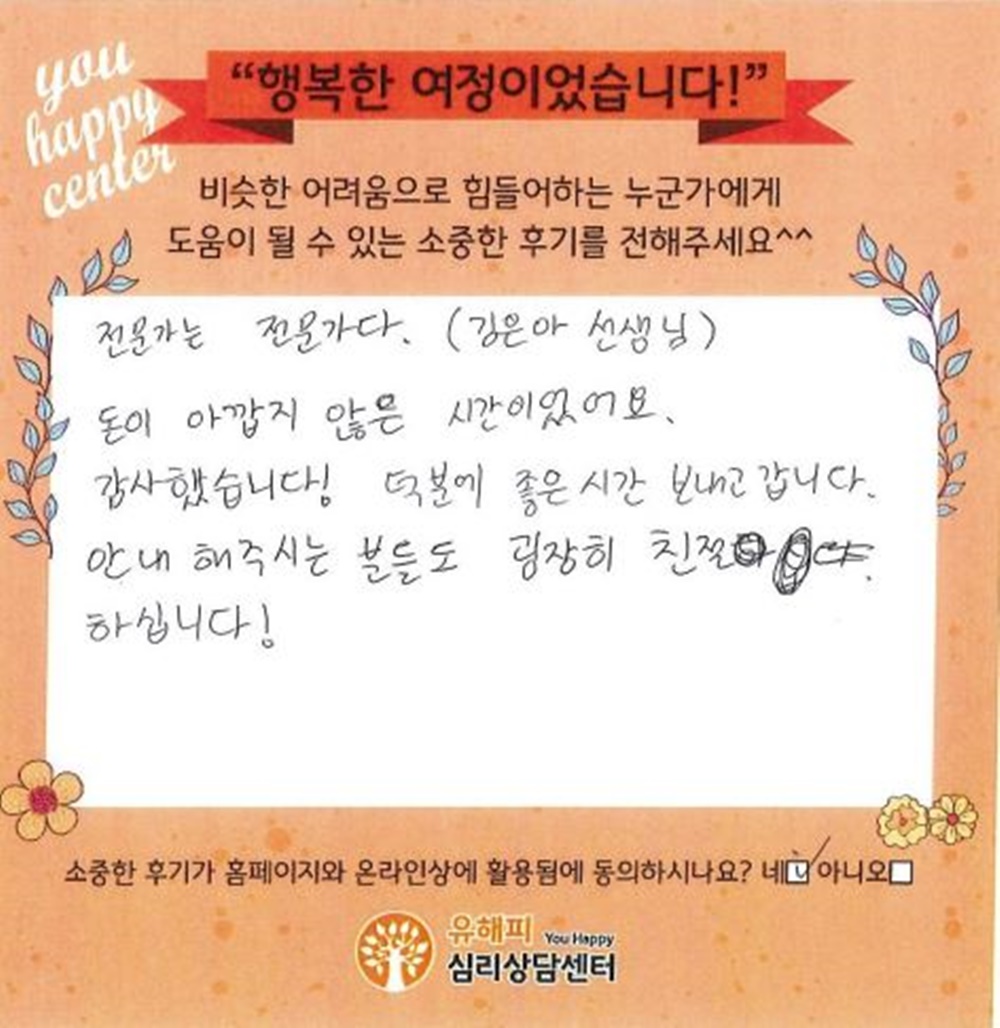 you
happy
center
“행복한 여정이었습니다!”
비슷한 어려움으로 힘들어하는 누군가에게
도움이 될 수 있는 소중한 후기를 전해주세요^^
전문가는 전문가다. (김은아 선생님)
돈이 아깝지 않은 시간이었어요.
감사했습니다! 덕분에 좋은 시간 보내고 갑니다.
안내 해주시는 분들도 굉장히 친절
하십니다!
소중한 후기가 홈페이지와 온라인상에 활용됨에 동의하시나요? 네☑ 아니오☐
유해피 You Happy
심리상담센터